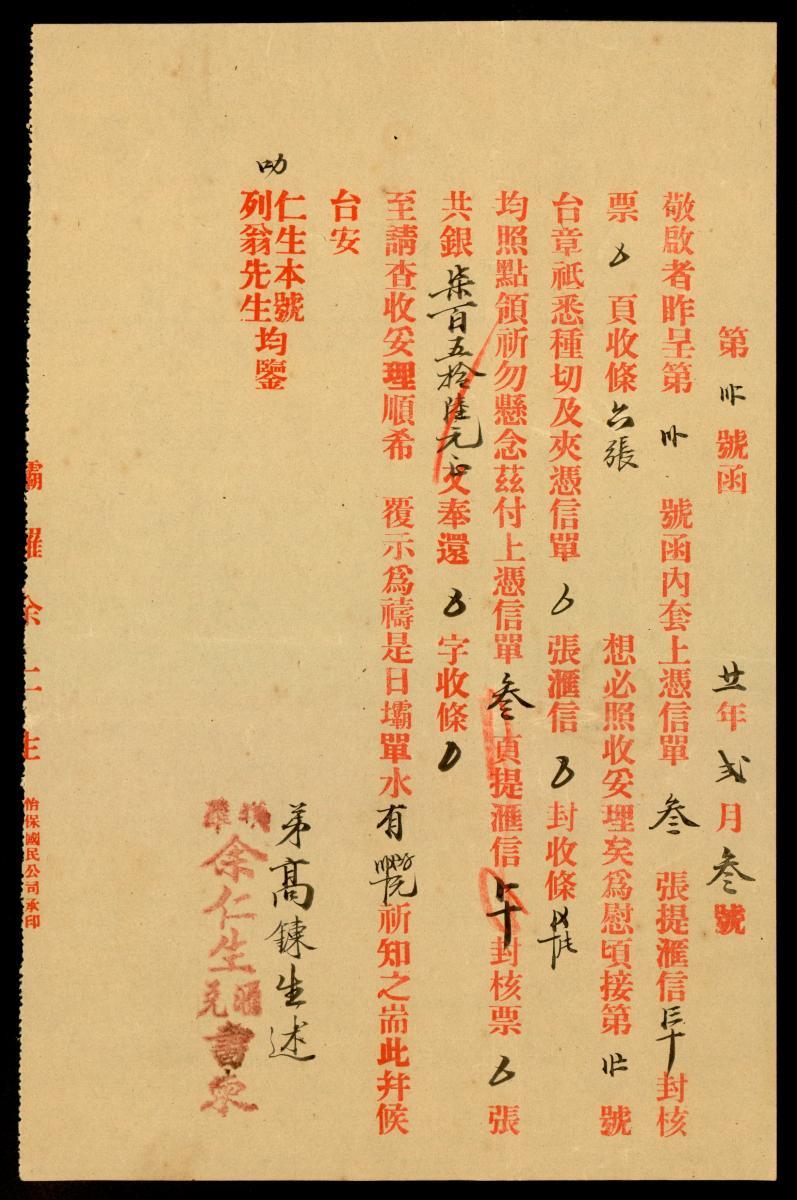 第 〢〥 號函 廿一年 弍月 叁號
敬啟者昨呈第 號函內套上憑信單 叁 張提滙信 封核
票 頁收條 六張 想必照收妥理矣為慰頃接第 號
台章祗悉種切及夾憑信單 張滙信 封收條
均照點領祈勿懸念茲付上憑信單 叁 頁提滙信 封核票 張
共銀 柒百五拾陸元正 文奉還 字收條
至請查收妥理順希 覆示為禱是日壩單水 有 祈知之耑此并候
台安
叻
仁生本號
列翁先生
均鑒
弟高鍊生述
余仁生
滙兌
書柬
壩羅余仁生
怡保國民公司承印